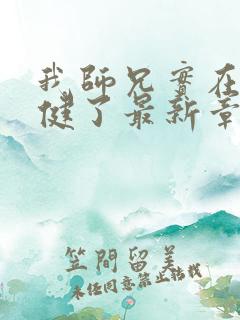 我師兄實在
健了最新章
笠間留美
未经同意禁止转载